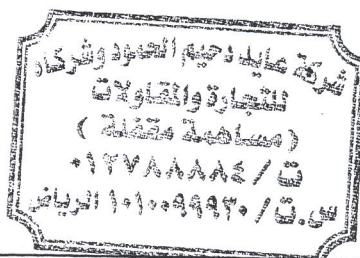 شركة عايد دحيم الحمود وشركاه
للتجارة والمقاولات
(مساهمة مقفلة)
ت / ٠١٢٧٨٨٨٨٤
س.ت / ١٠١٠٠٩٩٩٣٠ الرياض